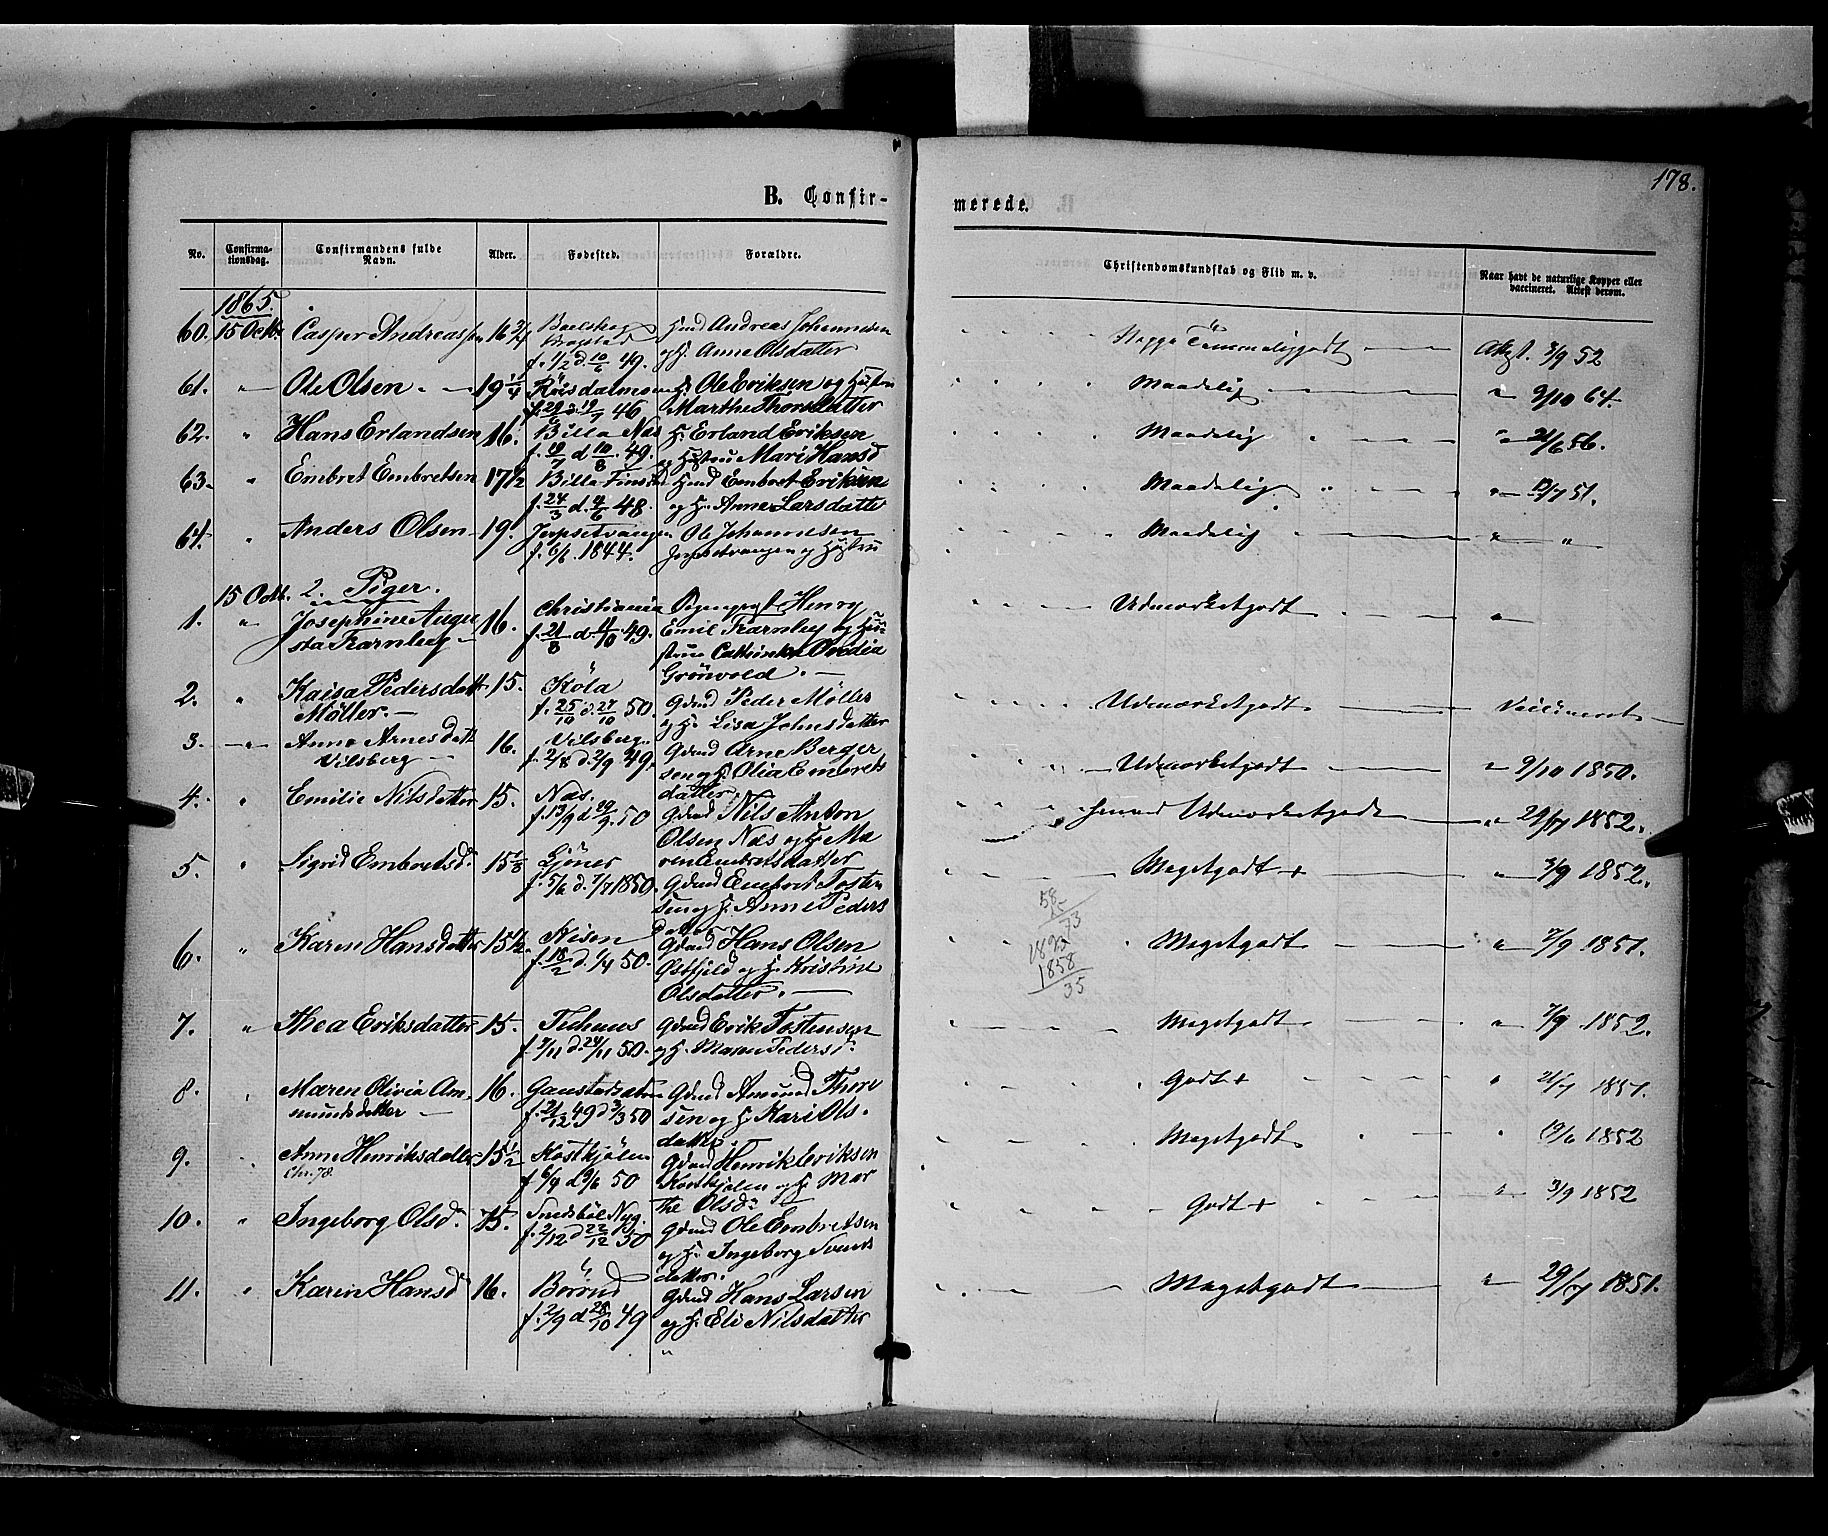 178.
B. Confir-
merede.
No.
Confirma-
tionsdag.
Confirmandens fulde
Navn.
Alder.
Fødested.
Forældre.
Christendomskundskab og Flid m. v.
Naar havt de naturlige Kopper eller
vaccineret. Attest derom.
1865.
60. 15 Octb. Casper Andreassen 16 3/4
f. 1/2 d. 10/6 49.
Andreas Johannesen
og H. Anne Olsdatter
Neppe Temmeliggodt Attest. 3/9 52
61. " Ole Olsen 19 1/4
46
H. Ole Eriksen og Hustru
Marthe Thorsdatter
Maadelig " 9/10 64.
62. " Hans Erlandsen 16. Billa Næs
d 10/8 49.
H. Erland Eriksen
og Hustru Mari Hansd
Maadelig " 21/6 56.
63. " Embret Embretsen 17 1/2 Billa
f. 24/3 d. 4/6 48.
Embret Eriksen
og H. Anne Larsdatter
Maadelig " 12/7 51.
64. " Anders Olsen 19.
f. 6/6. 1844.
Ole Johannesen
og Hustru
Maadelig " "
15 Octb. 2. Piger.
1. " Josephine Augu
sta 16. Christiania
f. 21/8 d 11/10 49.
Henry
Emil og Hu
stru Cathrinke Ovedia
Grönvold.
Udmærketgodt "
2. " Kaisa Pedersdatt
Möller. 15. Köla
f. 25/10 d. 27/10 50.
Gdmd Peder Möller
og H. Lisa Johnsdatter
Udmærketgodt Vaccineret
3. " Anne Arnesdatt
Vilsberg 16. Vilsberg
f. 2/8 d. 2/9 49.
Gdmd Arne Berger
sen og H. Olia Embrets
datter.
Udmærketgodt " 9/10 1850.
4. " Emilie Nilsdatter 15. Næs.
f. 13/9 d 29/9. 50
Gdmd Nils Anton
Olsen Næs og H. Ma
ren Embretsdatter
Udmærketgodt " 29/7 1852.
5. " Sigrid Embretsd. 15 1/3
f. 5/6 d. 7/7 1850.
Gdmd Embret Tosten
sen og H. Anne Peders
datter
Megetgodt + " 3/9 1852.
58
15
73
1893
1858
35
6. " Karen Hansdatter 15 1/2
f. 18/2 d. 1/4 50.
Gdmd Hans Olsen
Östfjeld og H. Kristine
Olsdatter.
Megetgodt " 7/9 1851.
7. " Thea Eriksdatter 15.
f. 7/11 d. 24/11 50.
Gdmd Erik Tostensen
og H. Maren Pedersd.
Megetgodt " 7/9 1852.
8. " Maren Olivia Am-
mundsdatter 16.
f. 21/12 49 d 3/3 50
Gdmd Amund Thore
sen og H. Kari Ols-
datter
Godt + " 21/7 1851.
9. " Anne Henriksdatter 15 1/2 Kostkjölen
Chr. 78.
50
Gdmd Henrik Eriksen
Kostkjölen og H. Mar
the Olsd.
Megetgodt " 1852
10. " Ingeborg Olsd. 15.
f. 2/12 d 22/12 50
Gdmd Ole Embretsen
og H. Ingeborg Svends
datter.
Godt + " 3/9 1852
11. " Karin Hansd 16.
f. 2/9 d 28/10 49
Gdmd Hans Larsen
og H. Eli Nilsdatter
Megetgodt " 29/7 1851.